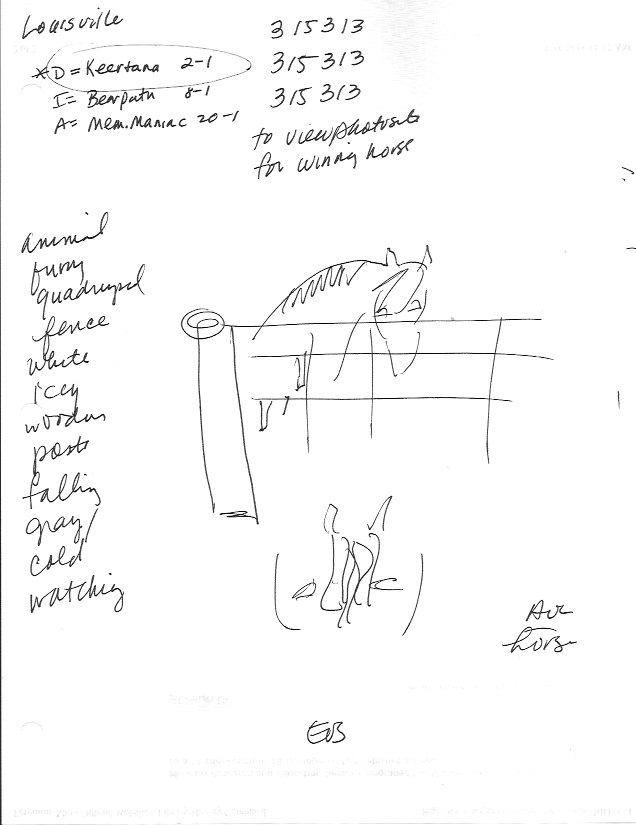 Louisville
*D = Keertana 2-1
I = Bearpath 8-1
A = Mem. Maniac 20-1
315313
315313
315313
to view photosite
for winning horse
animal
furry
quadruped
fence
white
icey
wooden
posts
falling
gray/
cold
watching
horse
EOB